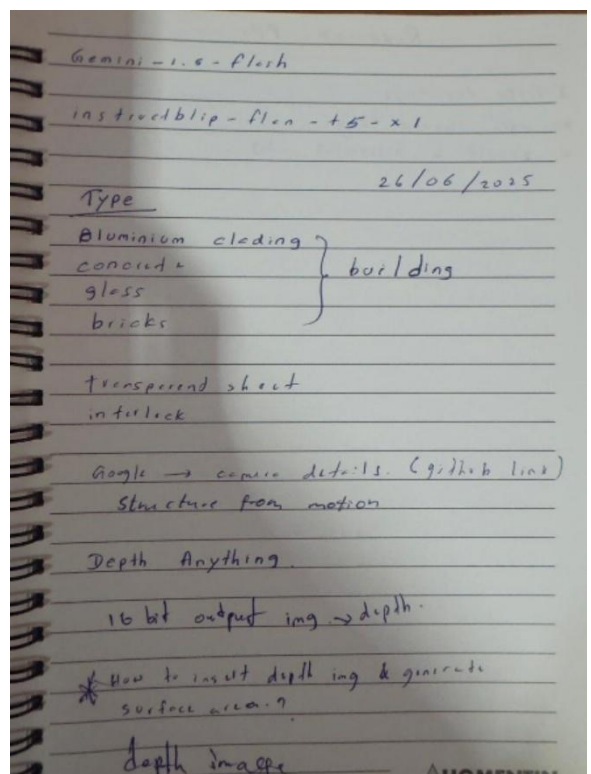 Gemini - 1.5 - flash
instructblip - flan - t5 - xl
26/06/2025
Type
Aluminium clading
concrete
glass
bricks
building
transparend sheet
interlock
Google → camera details. (github link)
Structure from motion
Depth Anything.
16 bit output img → depth.
* How to insert depth img & generate
surface area.?
depth images
AUGMENTIN